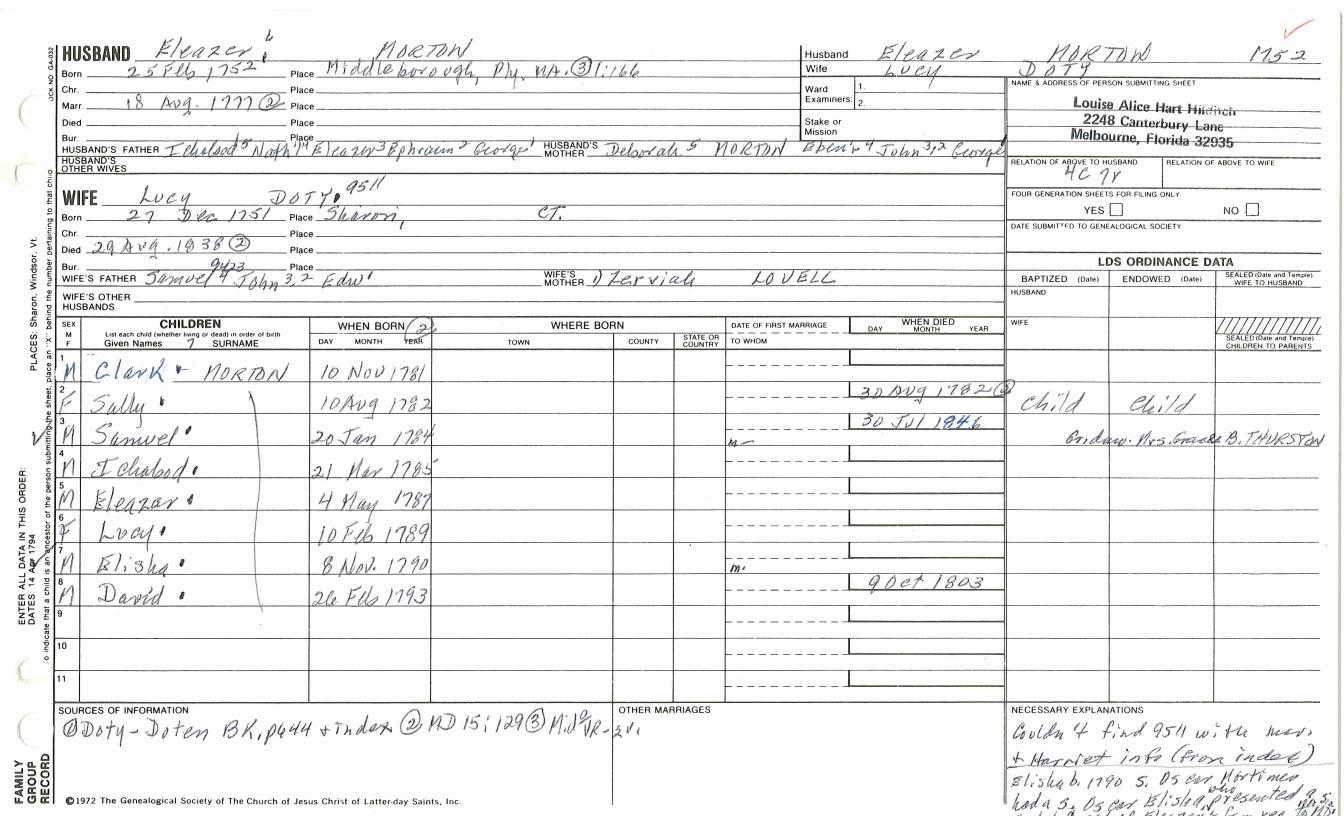 HUSBAND Eleazer 6 MORTON
Born 25 Feb 1752 Place Middleborough, Ply. MA. ③ 1:166
Chr. Place
Marr 18 Aug. 1777 ② Place
Died Place
Bur Place
HUSBAND'S FATHER Ichabod 5 Nath'l 4 Eleazer 3 Ephraim 2 George 1 HUSBAND'S MOTHER Deborah 5 MORTON Eben'r 4 John 3,2 George 1
HUSBAND'S OTHER WIVES
WIFE Lucy DOTY 9511
Born 27 Dec 1751 Place Sharon, CT.
Chr. Place
Died 29 Aug. 1838 ② Place
Bur. Place
9423
WIFE'S FATHER Samuel 4 John 3,2 Edw 1 WIFE'S MOTHER 1) Zerviah LOVELL
WIFE'S OTHER HUSBANDS
Husband Eleazer MORTON 1752
Wife Lucy DOTY
Ward 1.
Examiners: 2.
Stake or Mission
NAME & ADDRESS OF PERSON SUBMITTING SHEET
Louise Alice Hart Hilditch
2248 Canterbury Lane
Melbourne, Florida 32935
RELATION OF ABOVE TO HUSBAND RELATION OF ABOVE TO WIFE
4C 7r
FOUR GENERATION SHEETS FOR FILING ONLY
YES NO
DATE SUBMITTED TO GENEALOGICAL SOCIETY
LDS ORDINANCE DATA
BAPTIZED (Date) ENDOWED (Date) SEALED (Date and Temple) WIFE TO HUSBAND
HUSBAND
WIFE
SEALED (Date and Temple) CHILDREN TO PARENTS
SEX M F
CHILDREN
List each child (whether living or dead) in order of birth
Given Names 7 SURNAME
WHEN BORN ②
DAY MONTH YEAR
WHERE BORN
TOWN COUNTY STATE OR COUNTRY
DATE OF FIRST MARRIAGE
TO WHOM
WHEN DIED
DAY MONTH YEAR
1 M Clark MORTON 10 Nov 1781
2 F Sally 10 Aug 1782 30 Aug 1782 ② Child Child
3 M Samuel 20 Jan 1784 m— 30 Jul 1846 Gr.daw. Mrs. Grace B. THURSTON
4 M Ichabod 21 Mar 1785
5 M Eleazar 4 May 1787
6 F Lucy 10 Feb 1789
7 M Elisha 8 Nov. 1790 m.
8 M David 26 Feb 1793 9 Oct 1803
9
10
11
SOURCES OF INFORMATION
① Doty-Doten BK, p444 + index ② MD 15:129 ③ Mid. VR-2v.
OTHER MARRIAGES
NECESSARY EXPLANATIONS
Couldn't find 9511 with mar.
+ Harriet info (from index)
Elisha b. 1790 s. Oscar Mortimer
had a s. Oscar Elisha, who presented a
©1972 The Genealogical Society of The Church of Jesus Christ of Latter-day Saints, Inc.
FAMILY GROUP RECORD
ENTER ALL DATA IN THIS ORDER:
DATES: 14 Apr 1794
PLACES: Sharon, Windsor, Vt.
To indicate that a child is an ancestor of the person submitting the sheet, place an "X" behind the number pertaining to that child